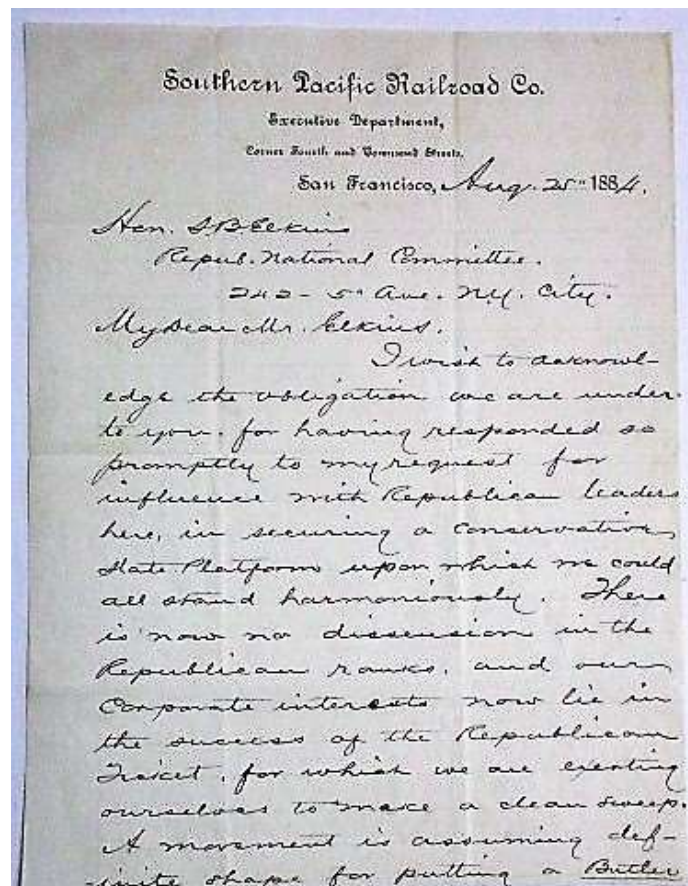 Southern Pacific Railroad Co.
Executive Department,
Corner Fourth and Townsend Streets.
San Francisco, Aug. 25" 1884.
Hon. S B Elkins
Repub. National Committee.
242 - 5" Ave. N.Y. City.
My Dear Mr. Elkins.
I wish to acknowl-
edge the obligation we are under
to you. for having responded so
promptly to my request for
influence with Republican leaders
here, in securing a conservative
State Platform upon which we could
all stand harmoniously. There
is now no dissension in the
Republican ranks, and our
Corporate interests now lie in
the success of the Republican
Ticket, for which we are exerting
ourselves to make a clean sweep.
A movement is assuming def-
-inite shape for putting a Butler